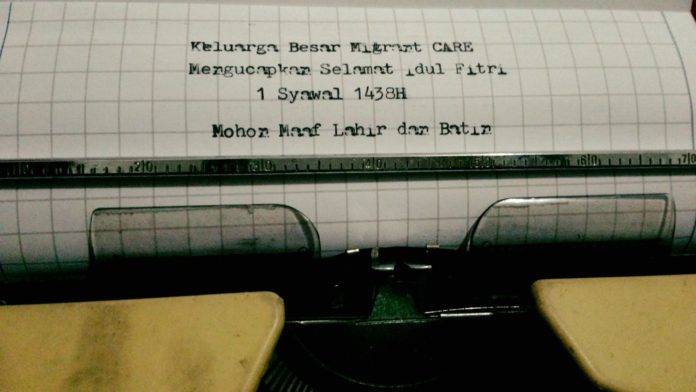 Keluarga Besar Migrant CARE
Mengucapkan Selamat idul Fitri
1 Syawal 1438H
Mohon Maaf Lahir dan Batin
20 30 40 50 60 70